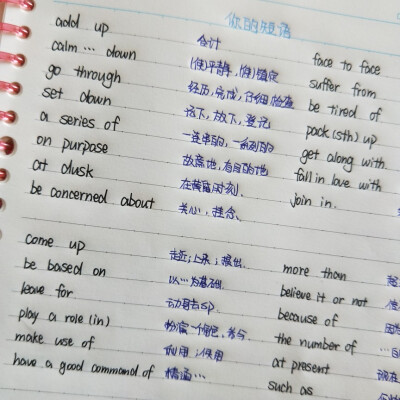 你的短语
add up 合计
calm … down (使)平静，(使)镇定
go through 经历，完成，仔细检查
set down 记下，放下，登记
a series of 一连串的，一系列的
on purpose 故意地，有目的地
at dusk 在黄昏时刻
be concerned about 关心，挂念
face to face
suffer from
be tired of
pack (sth) up
get along with
fall in love with
join in.
come up 走近；上来；提出
be based on 以…为基础
leave for 动身去sp
play a role (in) 扮演一个角色，参与
make use of 利用；使用
have a good command of 精通…
more than
believe it or not
because of
the number of
at present 现在
such as